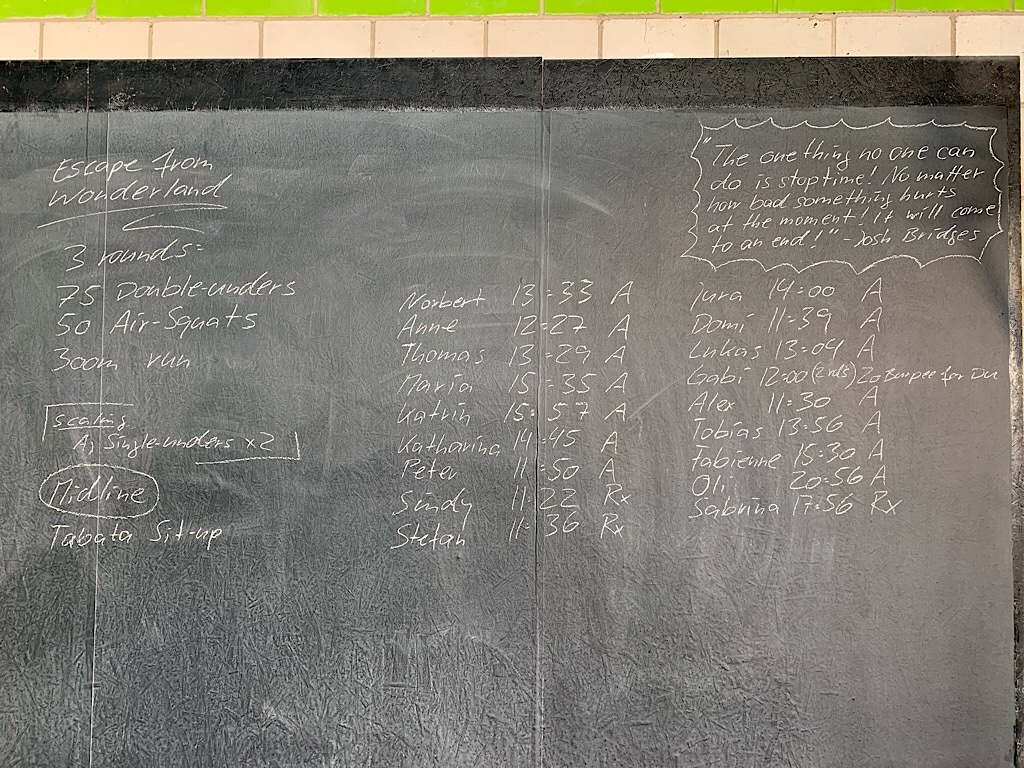 Escape from
Wonderland
3 rounds:
75 Double-unders
50 Air-Squats
300m run
Scaling
A, Single-unders x2
Midline
Tabata Sit-up
Norbert 13:33 A
Anne 12:27 A
Thomas 13:29 A
Maria 15:35 A
Katrin 15:57 A
Katharina 14:45 A
Peter 11:50 A
Sindy 11:22 Rx
Stefan 11:36 Rx
"The one thing no one can
do is stop time! No matter
how bad something hurts
at the moment! it will come
to an end!" - Josh Bridges
Jura 14:00 A
Domi 11:39 A
Lukas 13:04 A
Gabi 12:00 (2 rds) 20 Burpee for Du
Alex 11:30 A
Tobias 13:56 A
Fabienne 15:30 A
Oli 20:56 A
Sabrina 17:56 Rx